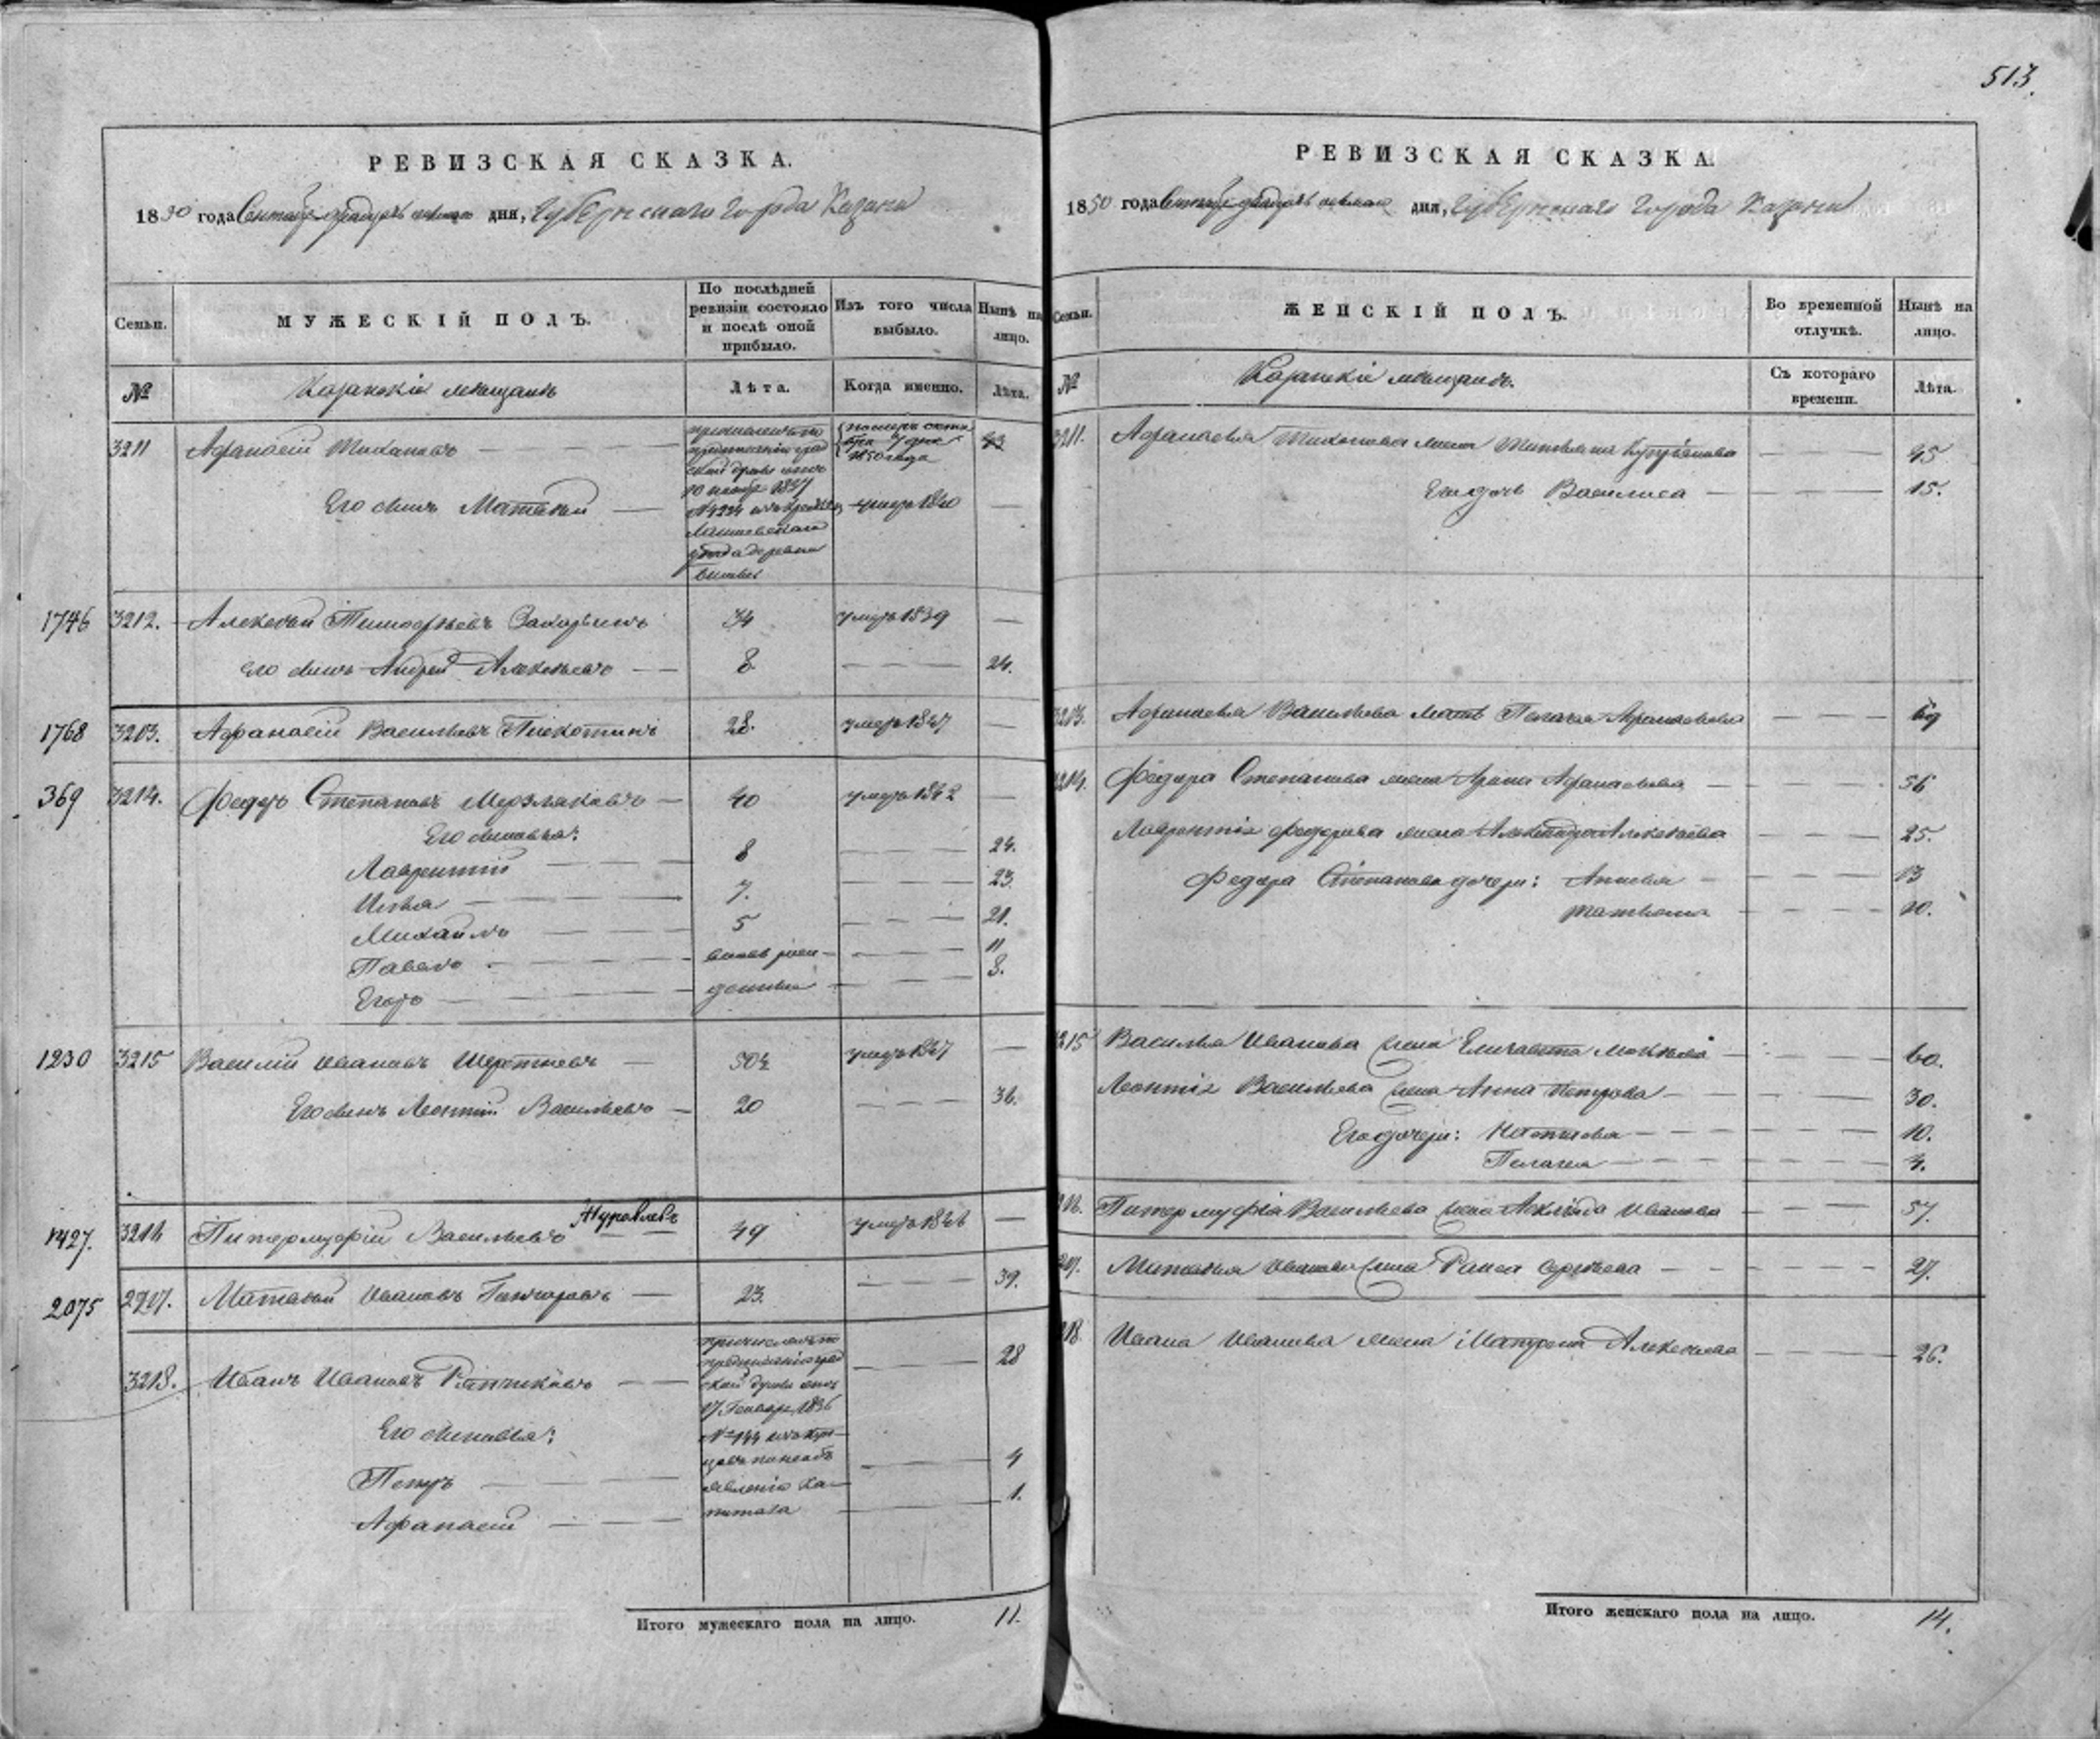 513.
РЕВИЗСКАЯ СКАЗКА.
1850 года дня, Губернскаго города Казани
Семьи.
МУЖЕСКІЙ ПОЛЪ.
По послѣдней
ревизіи состояло
и послѣ оной
прибыло.
Изъ того числа
выбыло.
Нынѣ на
лицо.
№
Казанскіе мещане
Лѣта.
Когда именно.
Лѣта.
3211 Афанасій Тихановъ
1850 года
Его сынъ Матвей умеръ 1840 —
причисленъ по
предписанію град
ской думы отъ
10 1837
Лаишевскаго
уезда деревни
1746 3212. Алексей Тимофеевъ Захарьинъ 34 умеръ 1839 —
его сынъ Андрей Алексеевъ 8. 24.
1768 3213. Афанасій Васильевъ 28. умеръ 1847 —
369 3214. Федоръ Степановъ Мерзляковъ 40 умеръ 1842 —
Его сыновья:
Лаврентій 8 24.
Илья 7. 23.
Михайло 5 21.
Павелъ вновь рож- 11
Егоръ денные 8.
1230 3215 Василій Ивановъ 50½ умеръ 1847 —
Его сынъ Леонтій Васильевъ 20 36.
1427. 3216 Питермуфій Васильевъ Журавлевъ 49 умеръ 1846 —
2075 Матвей Ивановъ Гончаровъ 23. 39.
3218. Иванъ Ивановъ 28
причисленъ по
предписанію град
ской думы отъ
17 Генваря 1836
№ 144 изъ куп-
цовъ по необъ
явленію ка-
питала
Его сыновья:
Петръ 4
Афанасій 1.
Итого мужескаго пола на лицо. 11.
РЕВИЗСКАЯ СКАЗКА
1850 года дня, Губернскаго города Казани
Семьи.
ЖЕНСКІЙ ПОЛЪ.
Во временной
отлучкѣ.
Нынѣ на
лицо.
№
Казанскіе мещане.
Съ котораго
времени.
Лѣта.
3211. Афанасья Тихонова жена Татьяна 45
Его дочь Василиса 15.
3213. Афанасья Васильева мать Пелагея Афанасьева 69
3214. Федора Степанова жена Арина Афанасьева 56
Лаврентія Федорова жена Александра Алексеева 25.
Федора Степанова дочери: Анисья 13
Татьяна 10.
3215 Василья Иванова жена Елизавета 60.
Леонтія Васильева жена Анна Петрова 30.
Его дочери: Настасья 10.
Пелагея 4.
Питермуфія Васильева жена Иванова 57.
Матвея Иванова жена Раиса Сергеева 27.
Ивана Иванова жена Матрена Алексеева 26.
Итого женскаго пола на лицо. 14.